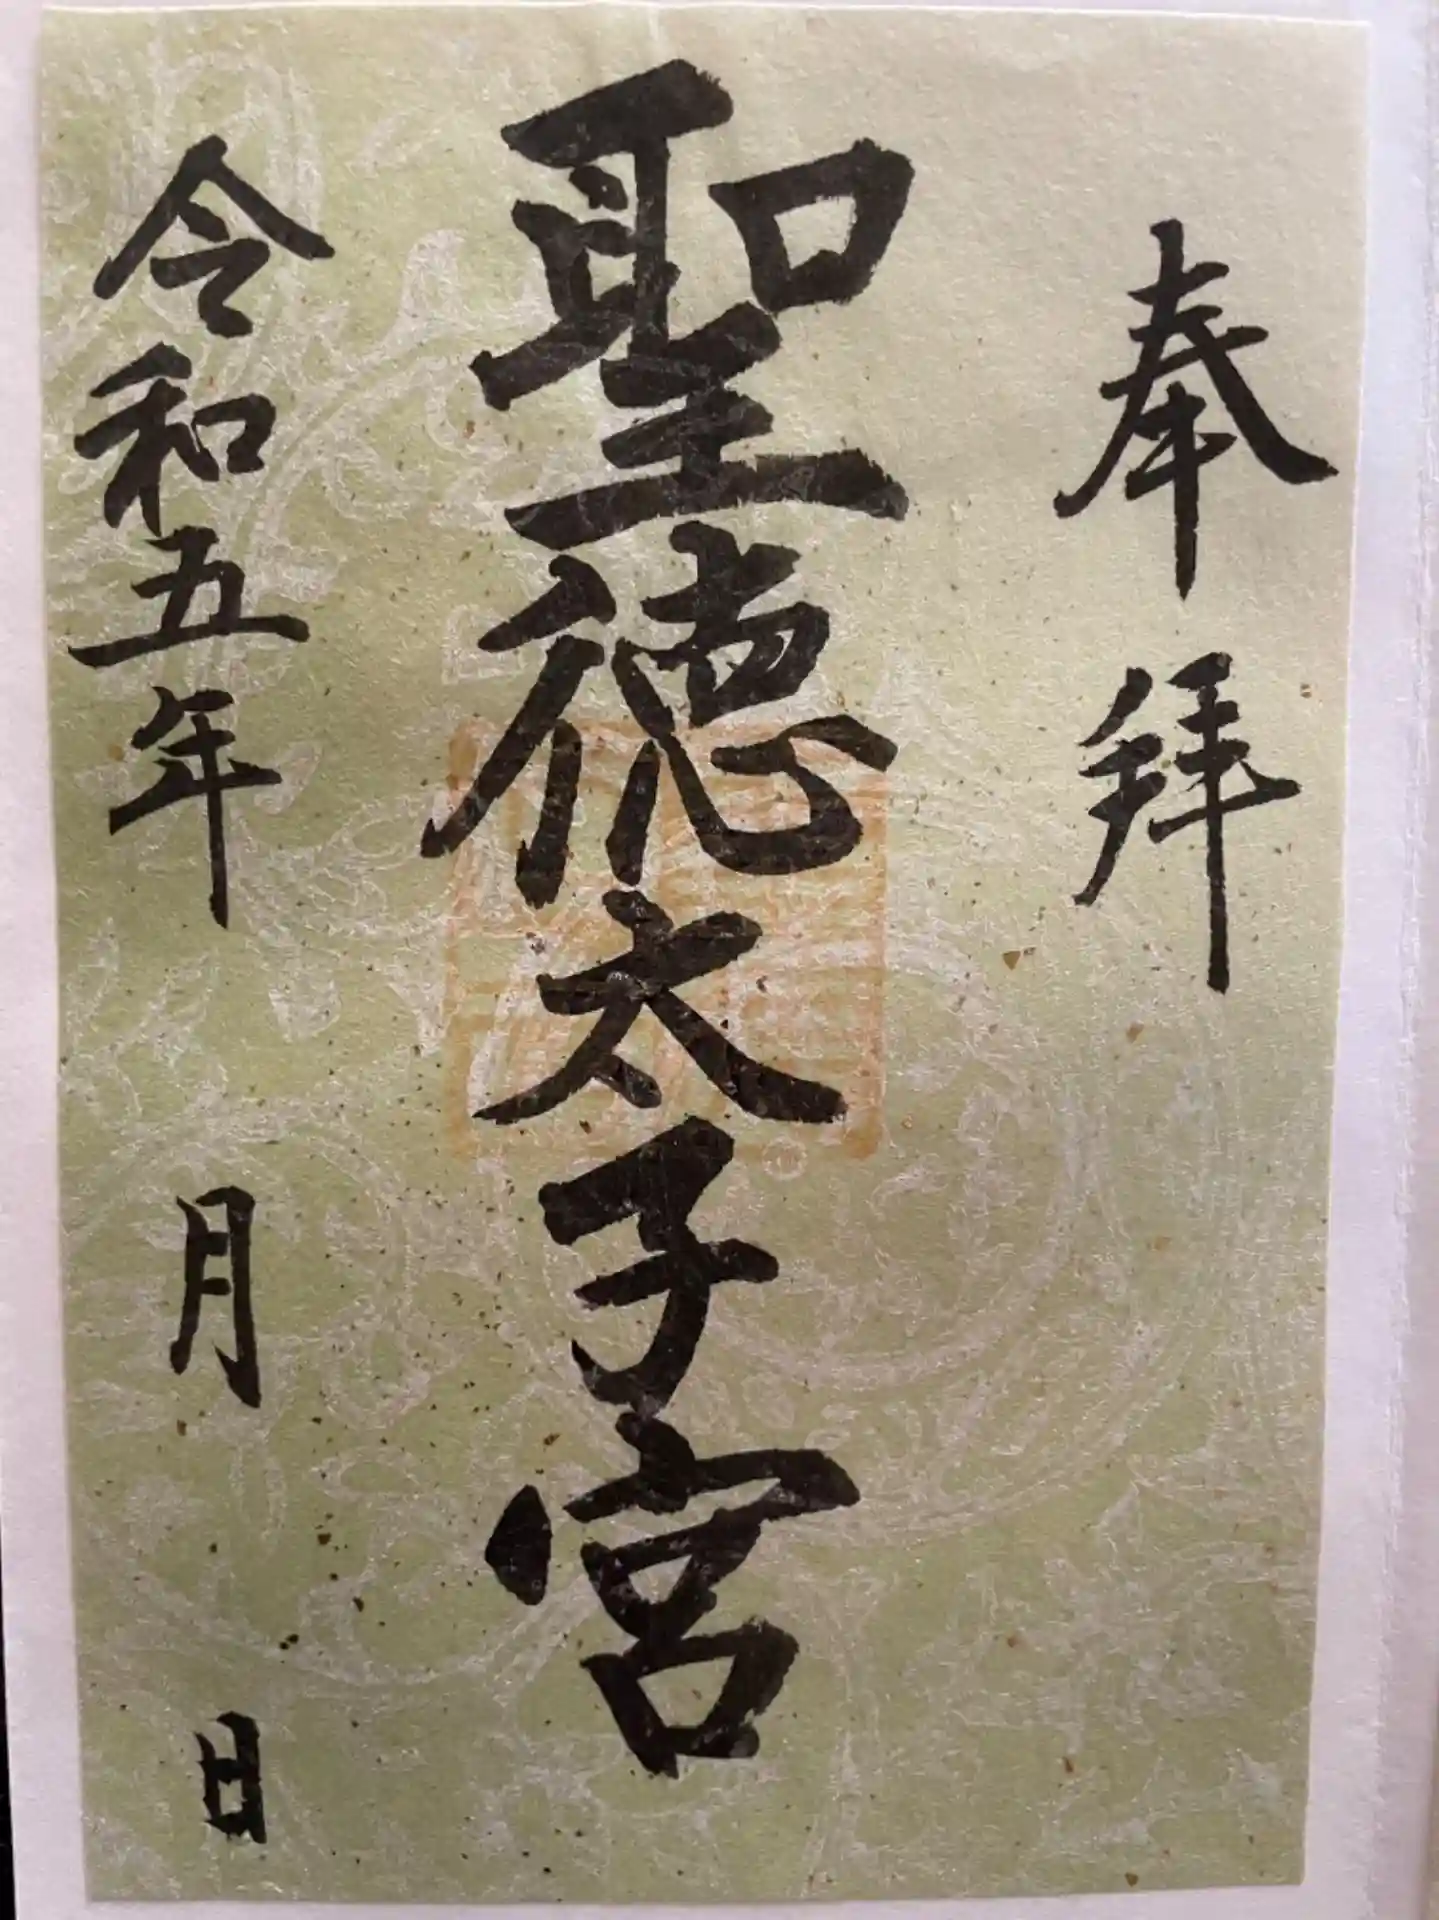 奉拝
聖徳太子宮
令和五年　月　日